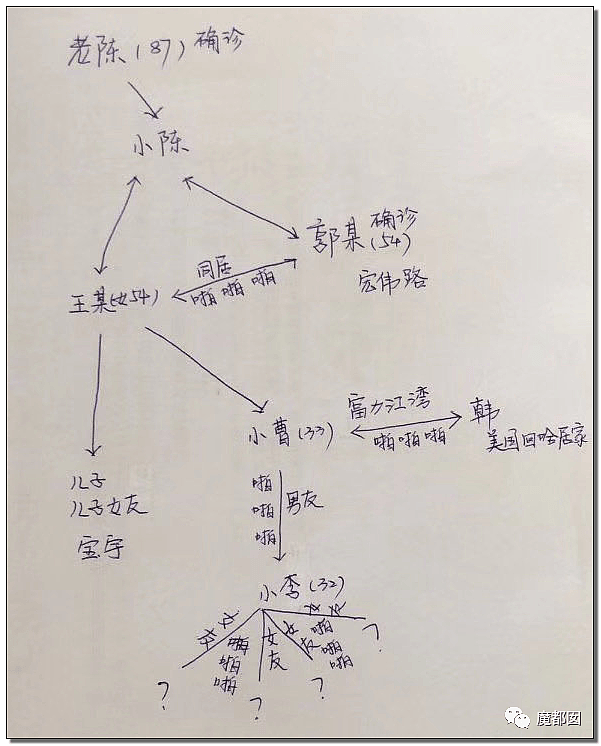 老陈(87)确诊
小陈
郭某 确诊
(54)
宏伟路
同居
啪啪啪
王某(女54)
富力江湾
小曹(33)
啪啪啪
韩
美国回哈居家
儿子
儿子女友
宝宇
啪
啪
啪
男友
小李(32)
女友
啪
啪
啪
女友
女友
女友
啪
啪
啪
?
?
?
?
魔都囡